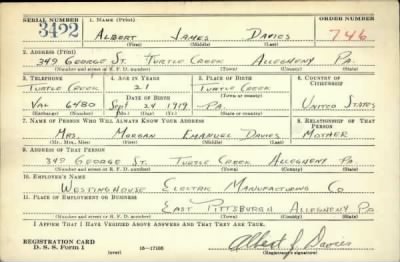 SERIAL NUMBER 1. NAME (Print) ORDER NUMBER
3422 ALBERT JAMES DAVIES 746
(First) (Middle) (Last)
2. ADDRESS (Print)
349 GEORGE ST. TURTLE CREEK ALLEGHENY PA.
(Number and street or R. F. D. number) (Town) (County) (State)
3. TELEPHONE 4. AGE IN YEARS 5. PLACE OF BIRTH 6. COUNTRY OF CITIZENSHIP
TURTLE CREEK 21 TURTLE CREEK
DATE OF BIRTH (Town or county)
VAL 6480 SEPT 24 1919 PA. UNITED STATES
(Exchange) (Number) (Mo.) (Day) (Yr.) (State or country)
7. NAME OF PERSON WHO WILL ALWAYS KNOW YOUR ADDRESS 8. RELATIONSHIP OF THAT PERSON
MRS. MORGAN EMANUEL DAVIES MOTHER
(Mr., Mrs., Miss) (First) (Middle) (Last)
9. ADDRESS OF THAT PERSON
349 GEORGE ST. TURTLE CREEK ALLEGHENY PA
(Number and street or R. F. D. number) (Town) (County) (State)
10. EMPLOYER'S NAME
WESTINGHOUSE ELECTRIC MANUFACTURING CO
11. PLACE OF EMPLOYMENT OR BUSINESS
EAST PITTSBURGH ALLEGHENY PA
(Number and street or R. F. D. number) (Town) (County) (State)
I AFFIRM THAT I HAVE VERIFIED ABOVE ANSWERS AND THAT THEY ARE TRUE.
REGISTRATION CARD
D. S. S. Form 1 (over) 16—17105 Albert J. Davies
(Registrant's signature)